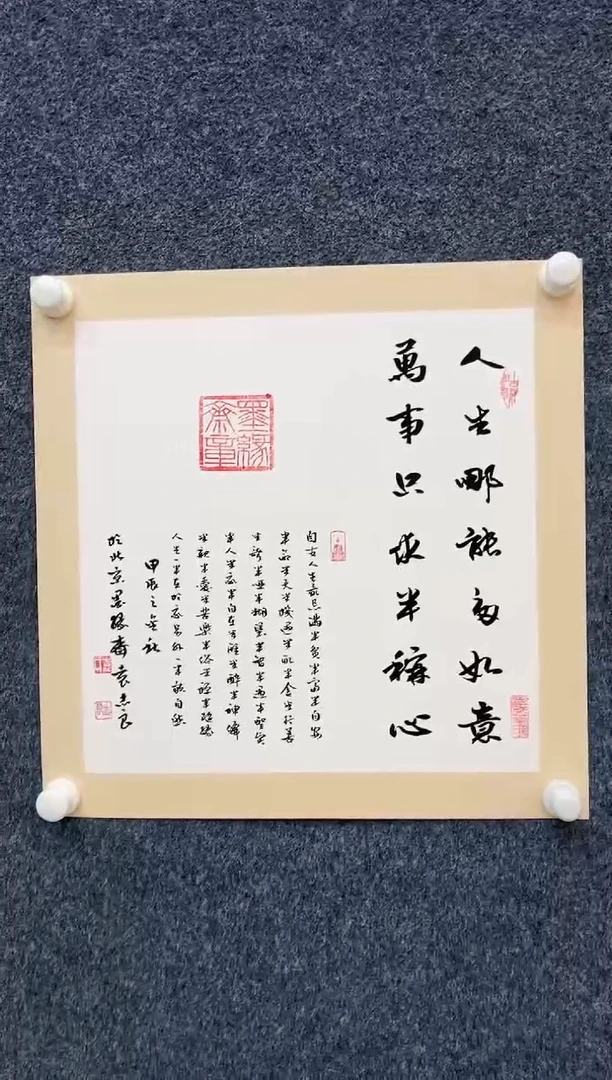 人生哪能多如意
萬事只求半稱心
自古人生最忌滿半貧半富半自安
半命半天半機遇半取半舍半行善
半聾半啞半糊塗半智半愚半聖賢
半人半我半自在半醒半醉半神仙
半親半愛半苦樂半俗半禪半隨緣
人生半在於我另外一半聽自然
甲辰之金秋
於北京墨緣齋袁志良
墨緣齋